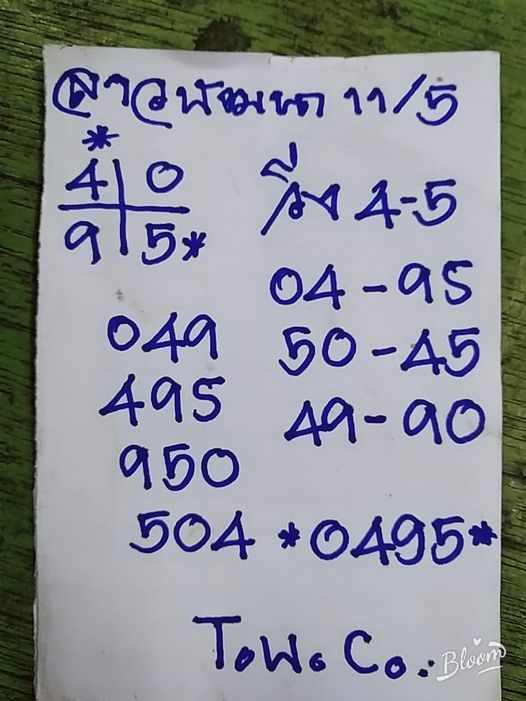 ลาวพัฒนา 11/5
*
4 0
9 5*
วิ่ง 4-5
04-95
50-45
49-90
049
495
950
504 *0495*
T.W.Co.
Bloom